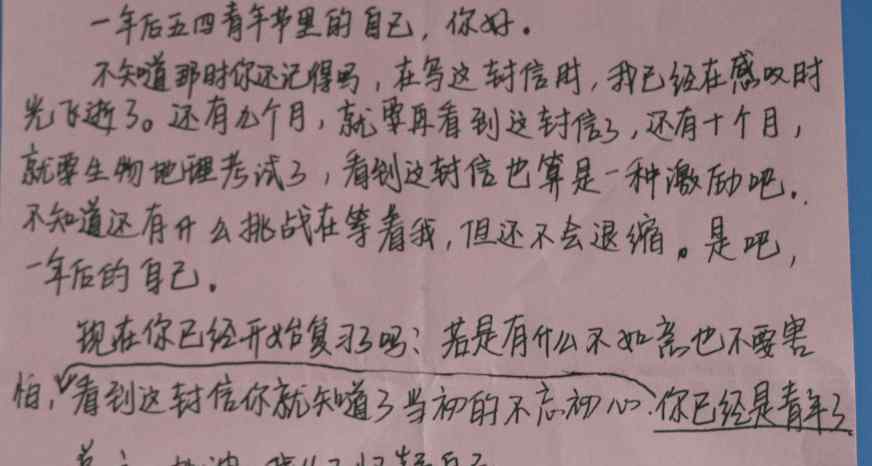 一年后五四青年节里的自己，你好。
不知道那时你还记得吗，在写这封信时，我已经在感叹时
光飞逝了。还有九个月，就要再看到这封信了，还有十个月，
就要生物地理考试了，看到这封信也算是一种激励吧。
不知道还有什么挑战在等着我，但还不会退缩。是吧，
一年后的自己。
现在你已经开始复习了吗？若是有什么不如意也不要害
怕，看到这封信你就知道了当初的不忘初心。你已经是青年了